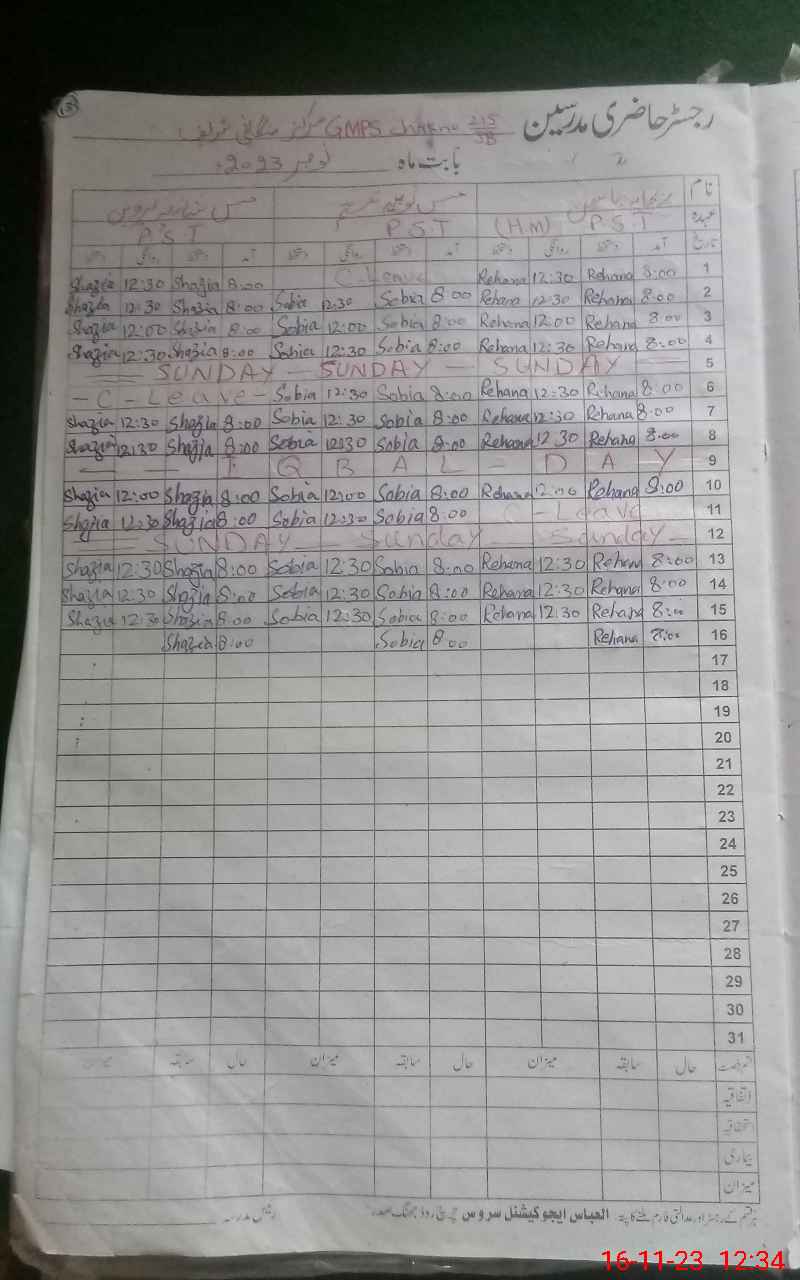 13
رجسٹر حاضری مدرسین GMPS chak no 215/JB مرکز منگانی شریف
بابت ماہ نومبر 2023ء
نام ریحانہ مس مس
عہدہ P.S.T (H.M) P.S.T P.S.T
تاریخ آمد دستخط روانگی دستخط آمد دستخط روانگی دستخط آمد دستخط روانگی دستخط
Shazia 12:30 Shazia 8:00 C-Leave Rehana 12:30 Rehana 8:00 1
Shazia 12:30 Shazia 8:00 Sobia 12:30 Sobia 8:00 Rehana 12:30 Rehana 8:00 2
Shazia 12:00 Shazia 8:00 Sobia 12:00 Sobia 8:00 Rehana 12:00 Rehana 8:00 3
Shazia 12:30 Shazia 8:00 Sobia 12:30 Sobia 8:00 Rehana 12:30 Rehana 8:00 4
SUNDAY - SUNDAY - SUNDAY 5
- C - Leave - Sobia 12:30 Sobia 8:00 Rehana 12:30 Rehana 8:00 6
Shazia 12:30 Shazia 8:00 Sobia 12:30 Sobia 8:00 Rehana 12:30 Rehana 8:00 7
Shazia 12:30 Shazia 8:00 Sobia 12:30 Sobia 8:00 Rehana 12:30 Rehana 8:00 8
IQBAL - DAY 9
Shazia 12:00 Shazia 8:00 Sobia 12:00 Sobia 8:00 Rehana 12:00 Rehana 8:00 10
Shazia 12:30 Shazia 8:00 Sobia 12:30 Sobia 8:00 C-Leave 11
SUNDAY - Sunday - Sunday 12
Shazia 12:30 Shazia 8:00 Sobia 12:30 Sobia 8:00 Rehana 12:30 Rehana 8:00 13
Shazia 12:30 Shazia 8:00 Sobia 12:30 Sobia 8:00 Rehana 12:30 Rehana 8:00 14
Shazia 12:30 Shazia 8:00 Sobia 12:30 Sobia 8:00 Rehana 12:30 Rehana 8:00 15
Shazia 8:00 Sobia 8:00 Rehana 8:00 16
17
18
19
20
21
22
23
24
25
26
27
28
29
30
31
قسم رخصت حال سابقہ میزان حال سابقہ میزان حال سابقہ میزان
اتفاقیہ
استحقاقیہ
بیماری
میزان
ہر قسم کے رجسٹر اور عدالتی فارم ملنے کا پتہ: العباس ایجوکیشنل سروس روڈ جھنگ صدر رئیس مدرسہ
16-11-23 12:34